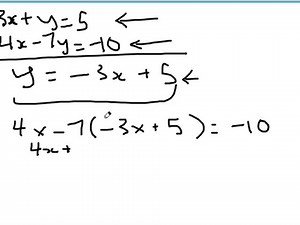 3x + y = 5
4x - 7y = -10
y = -3x + 5
4x - 7(-3x + 5) = -10
4x +